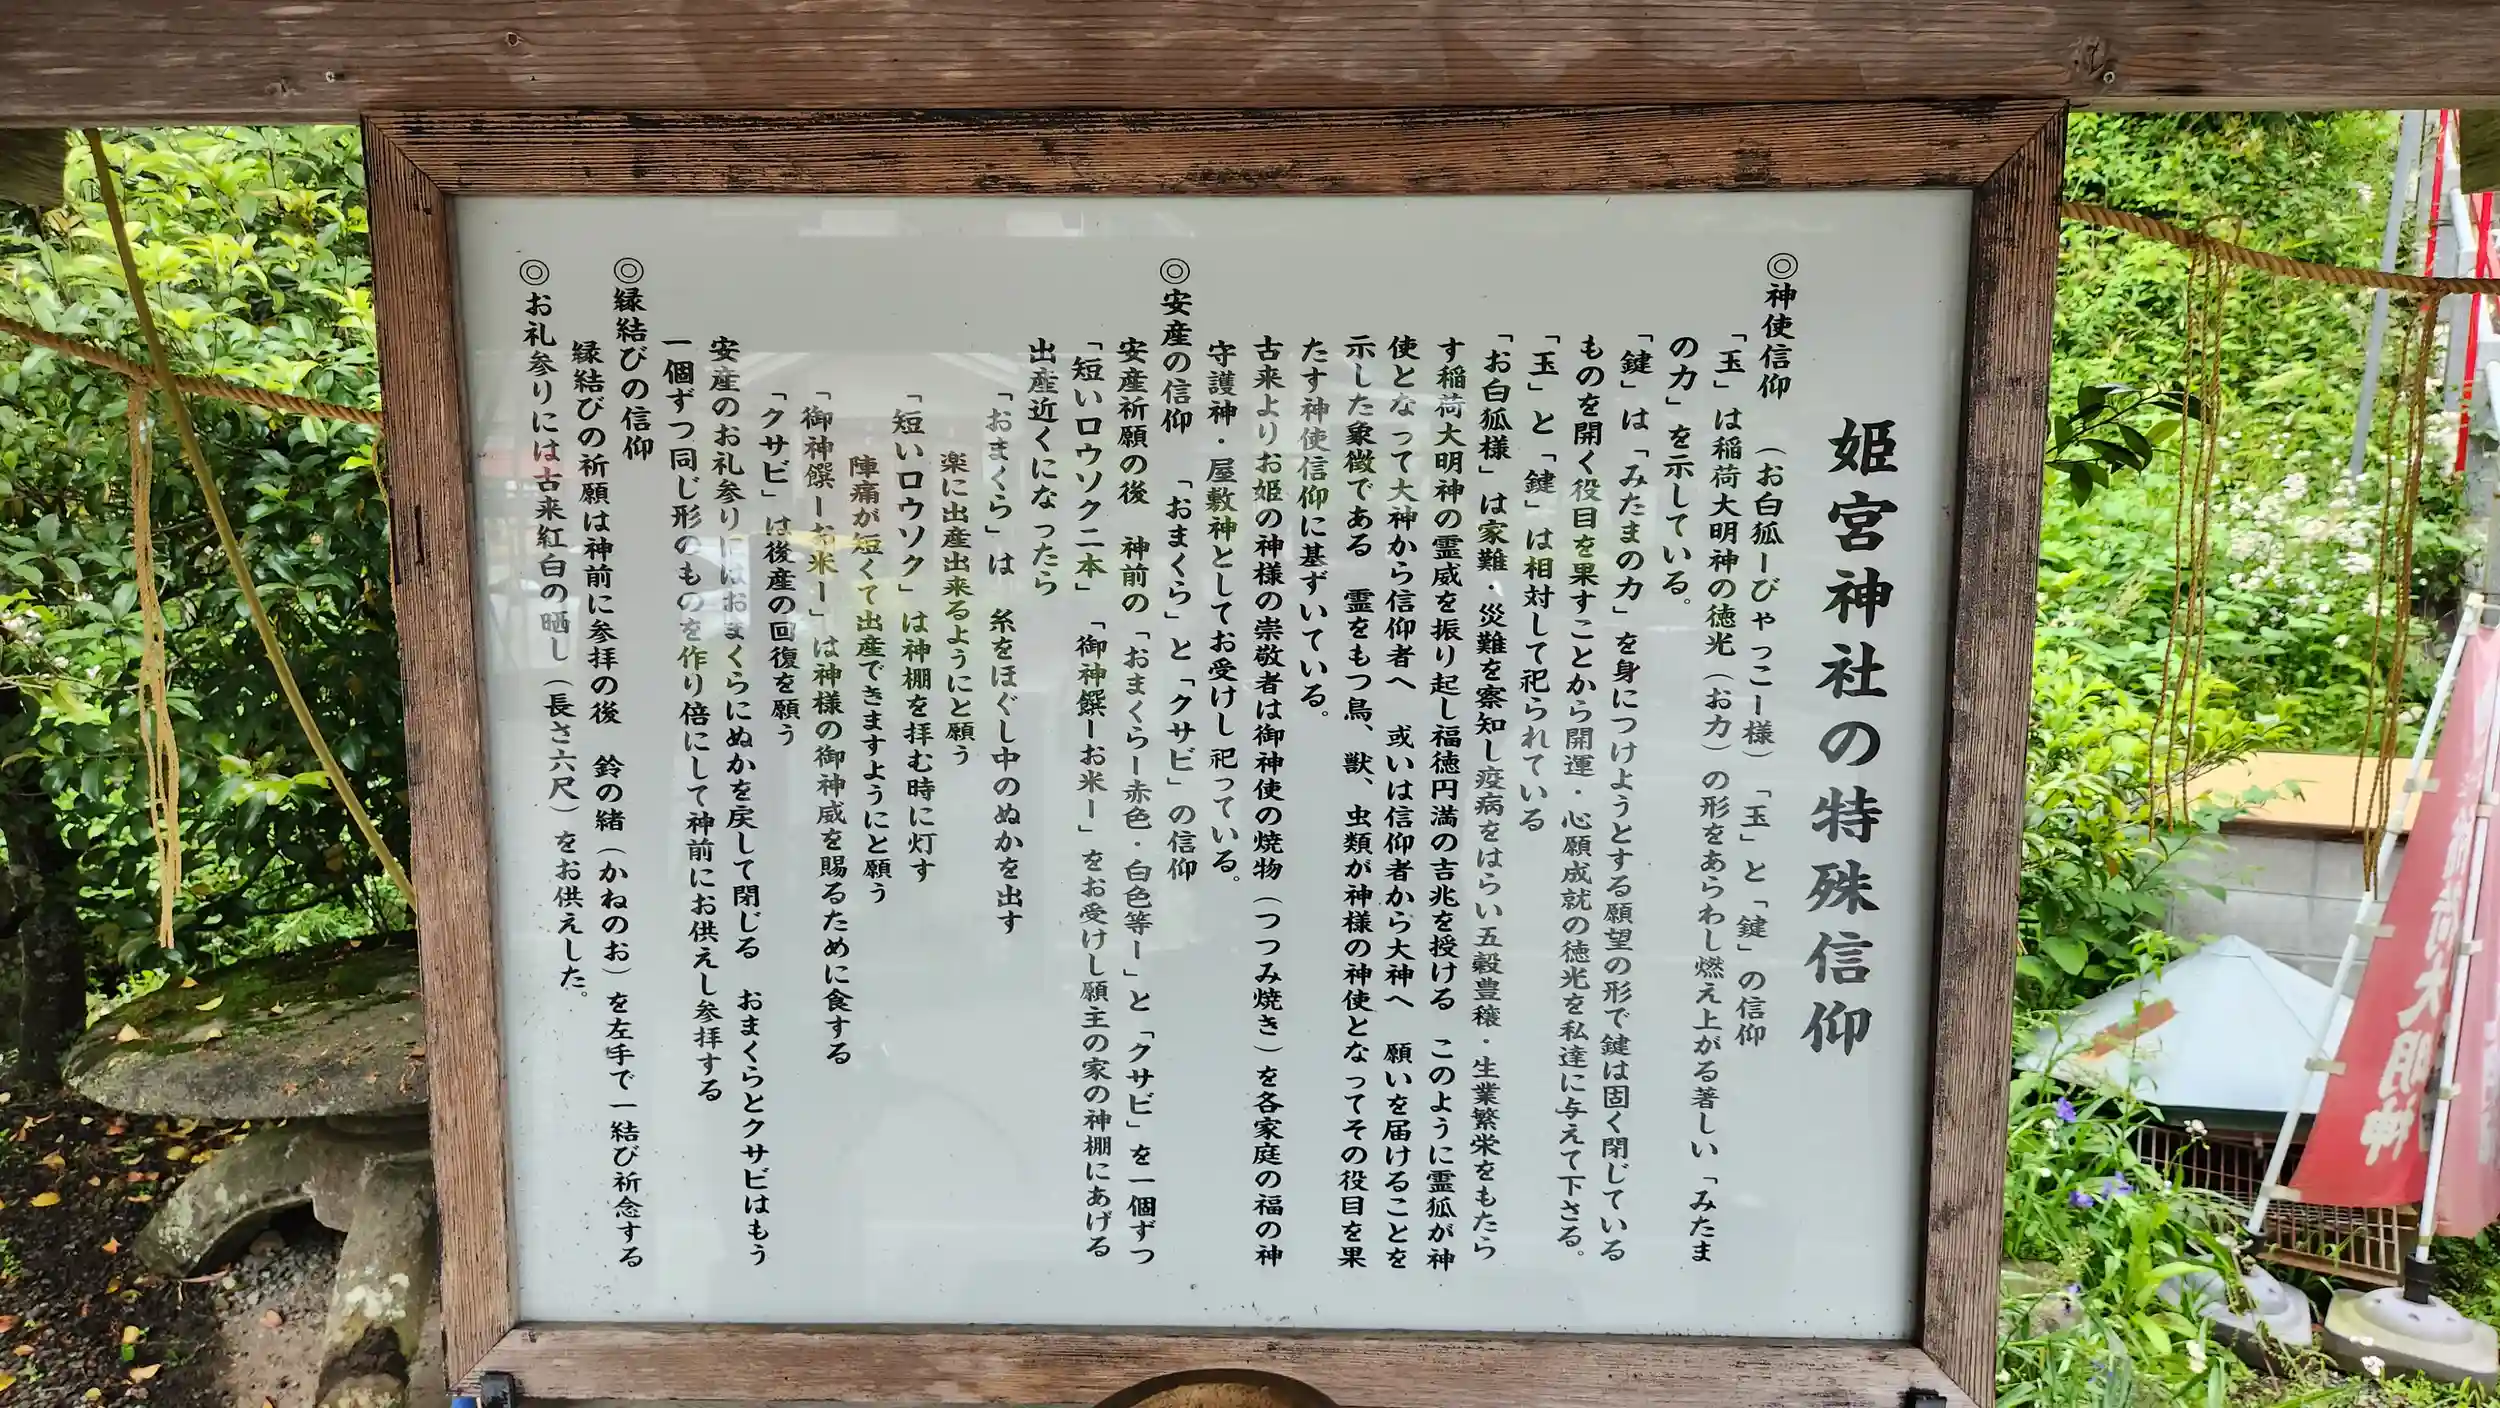 姫宮神社の特殊信仰
◎神使信仰　（お白狐ーびゃっこー様）「玉」と「鍵」の信仰
「玉」は稲荷大明神の徳光（お力）の形をあらわし燃え上がる著しい「みたま
の力」を示している。
「鍵」は「みたまの力」を身につけようとする願望の形で鍵は固く閉じている
ものを開く役目を果すことから開運・心願成就の徳光を私達に与えて下さる。
「玉」と「鍵」は相対して祀られている
「お白狐様」は家難・災難を察知し疫病をはらい五穀豊穣・生業繁栄をもたら
す稲荷大明神の霊威を振り起し福徳円満の吉兆を授ける　このように霊狐が神
使となって大神から信仰者へ　或いは信仰者から大神へ　願いを届けることを
示した象徴である　霊をもつ鳥、獣、虫類が神様の神使となってその役目を果
たす神使信仰に基ずいている。
古来よりお姫の神様の崇敬者は御神使の焼物（つつみ焼き）を各家庭の福の神
守護神・屋敷神としてお受けし祀っている。
◎安産の信仰　「おまくら」と「クサビ」の信仰
安産祈願の後　神前の「おまくらー赤色・白色等ー」と「クサビ」を一個ずつ
「短いロウソク二本」「御神饌ーお米ー」をお受けし願主の家の神棚にあげる
出産近くになったら
「おまくら」は　糸をほぐし中のぬかを出す
楽に出産出来るようにと願う
「短いロウソク」は神棚を拝む時に灯す
陣痛が短くて出産できますようにと願う
「御神饌ーお米ー」は神様の御神威を賜るために食する
「クサビ」は後産の回復を願う
安産のお礼参りにはおまくらにぬかを戻して閉じる　おまくらとクサビはもう
一個ずつ同じ形のものを作り倍にして神前にお供えし参拝する
◎縁結びの信仰
縁結びの祈願は神前に参拝の後　鈴の緒（かねのお）を左手で一結び祈念する
◎お礼参りには古来紅白の晒し（長さ六尺）をお供えした。
大明神